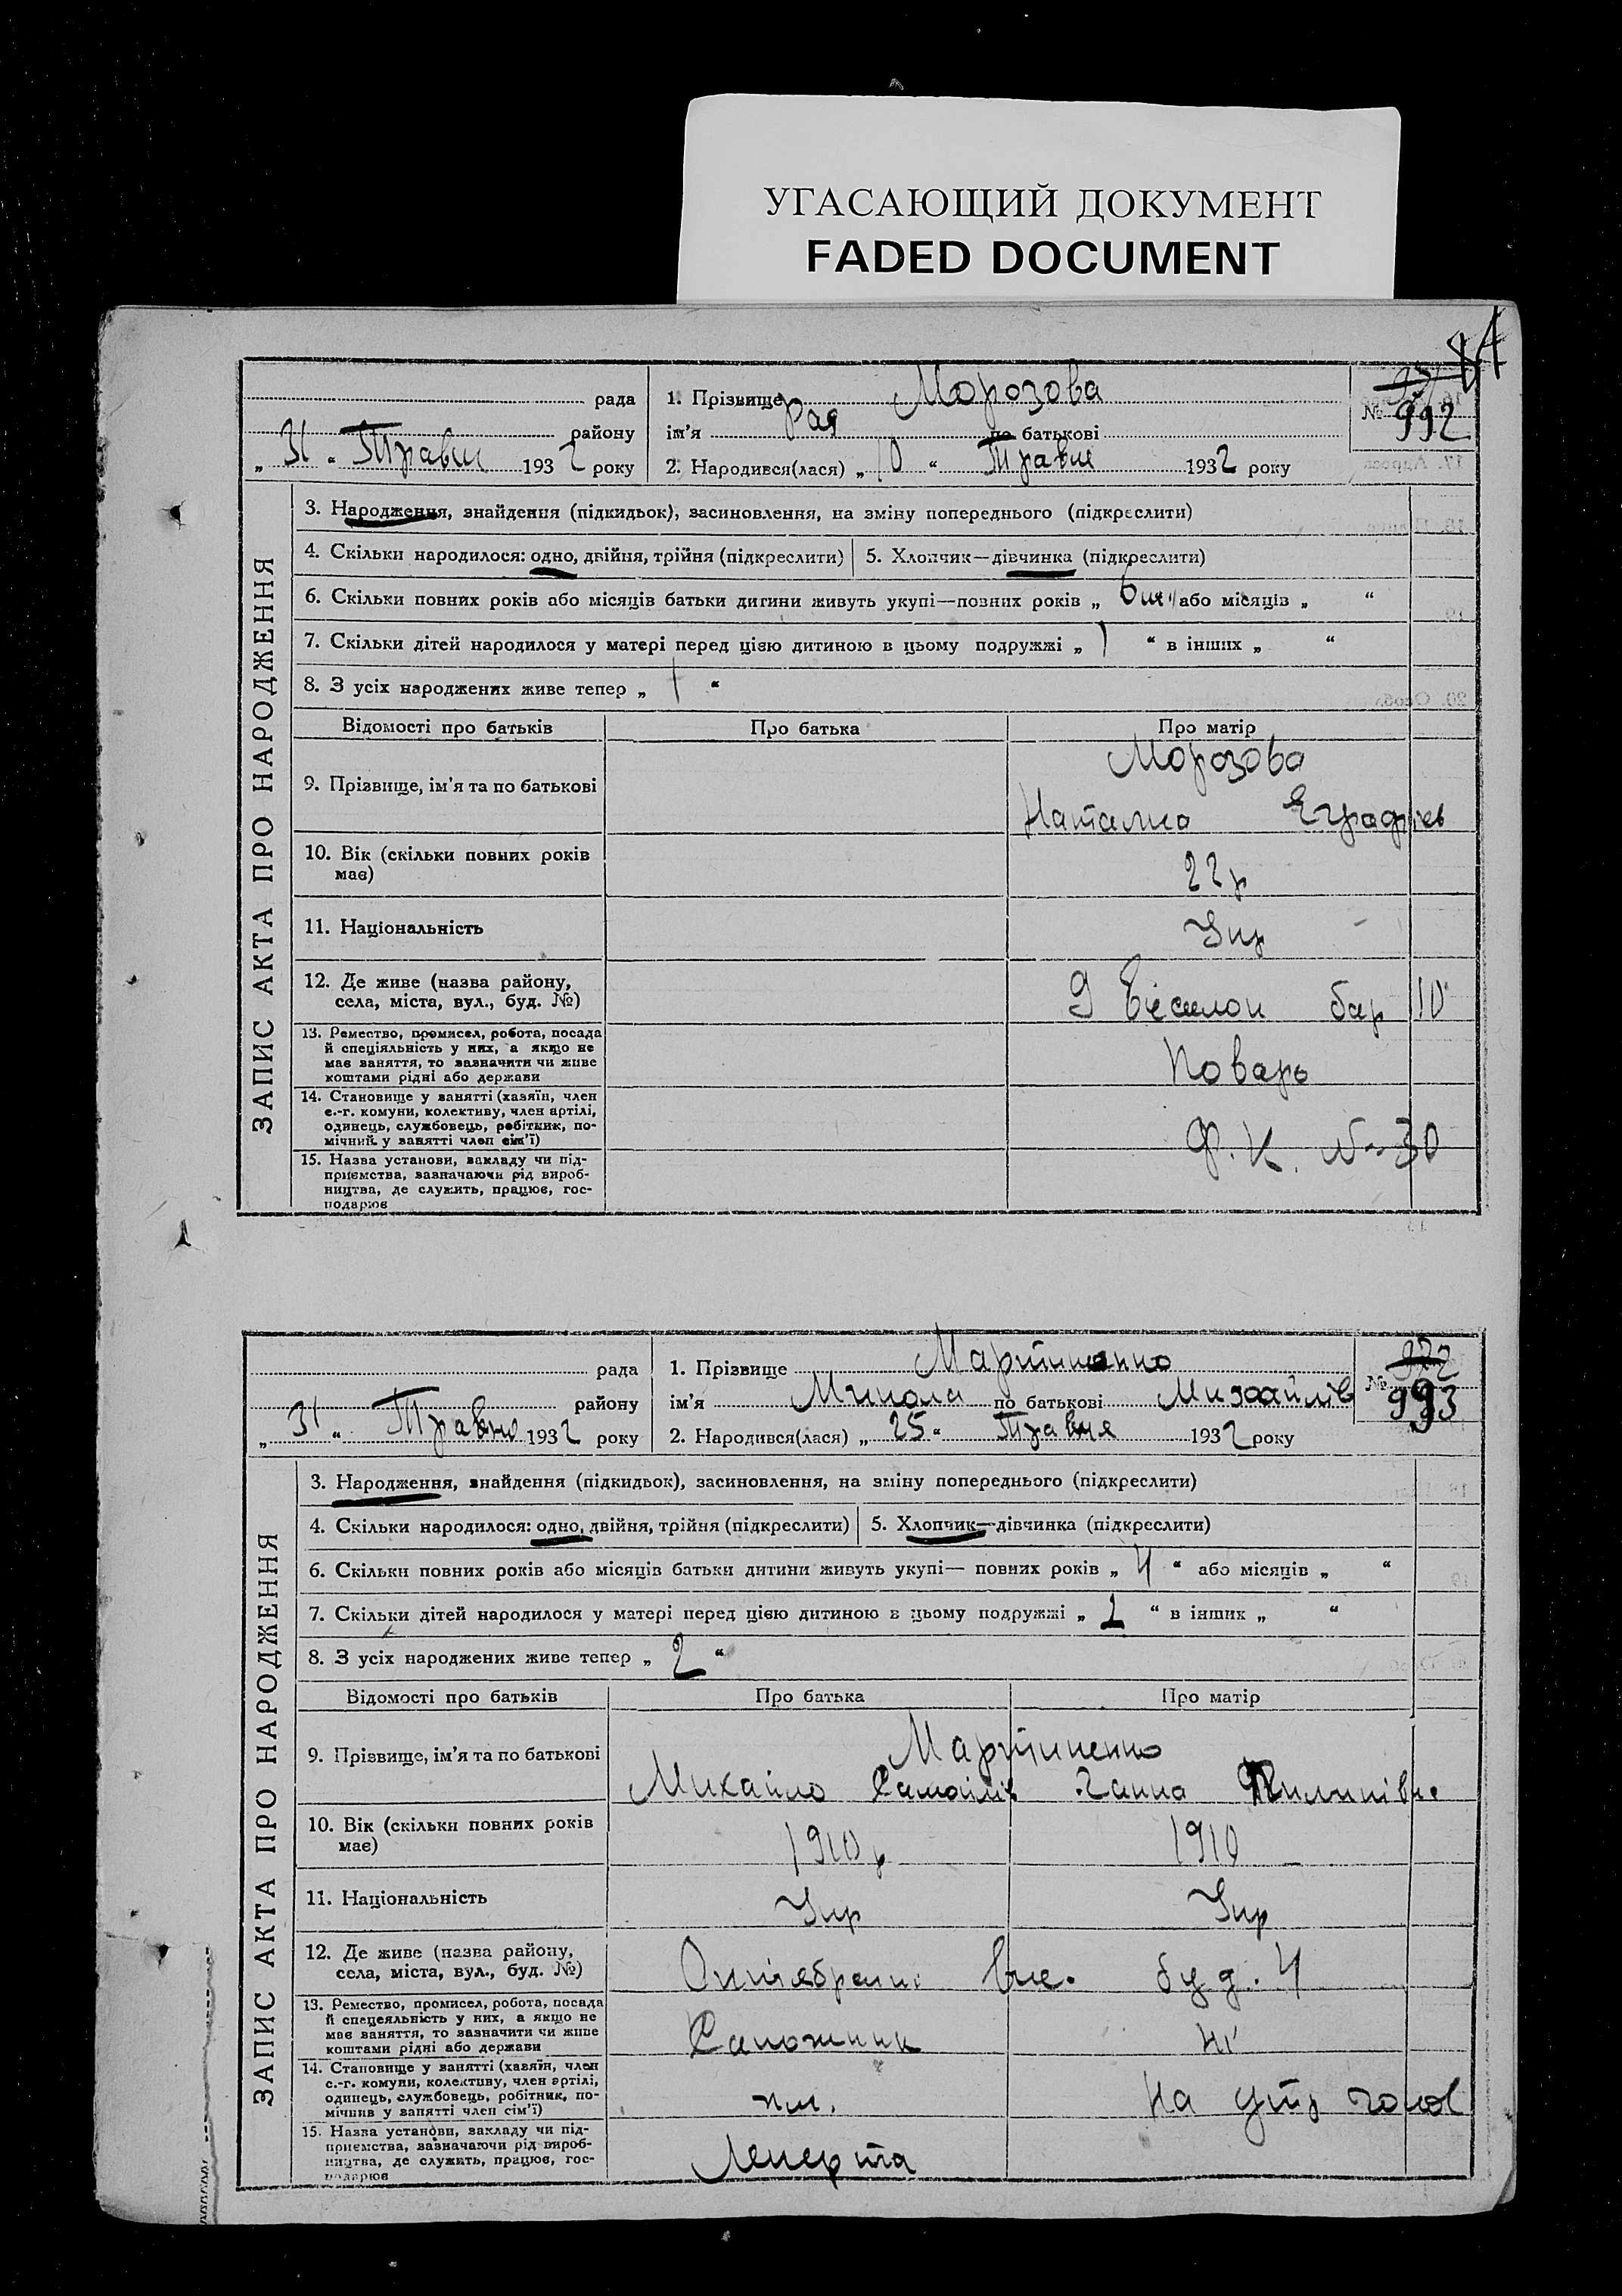 УГАСАЮЩИЙ ДОКУМЕНТ
FADED DOCUMENT
рада
району
„ 31 “ Травня 1932 року
1. Прізвище Морозова
ім'я Рая по батькові
2. Народився(лася) „ 10 “ Травня 1932 року
№ 992
ЗАПИС АКТА ПРО НАРОДЖЕННЯ
3. Народження, знайдення (підкидьок), засиновлення, на зміну попереднього (підкреслити)
4. Скільки народилося: одно, двійня, трійня (підкреслити)
5. Хлопчик—дівчинка (підкреслити)
6. Скільки повних років або місяців батьки дитини живуть укупі—повних років „ або місяців „ “
7. Скільки дітей народилося у матері перед цією дитиною в цьому подружжі „ 1 “ в інших „ “
8. З усіх народжених живе тепер „ 1 “
Відомості про батьків
Про батька
Про матір
9. Прізвище, ім'я та по батькові
Морозова
Наталия
10. Вік (скільки повних років
має)
22 р
11. Національність
Укр
12. Де живе (назва району,
села, міста, вул., буд. №)
бар 10
13. Ремество, промисел, робота, посада
й спеціяльність у них, а якщо не
має заняття, то зазначити чи живе
коштами рідні або держави
Поваръ
14. Становище у занятті (хазяїн, член
с.-г. комуни, колективу, член артілі,
одинець, службовець, робітник, по-
мічний у занятті член сім'ї)
Ф. К. № 30
15. Назва установи, закладу чи під-
приємства, зазначаючи рід вироб-
ництва, де служить, працює, гос-
подарює
рада
району
„ 31 “ Травня 1932 року
1. Прізвище Мартиненко
ім'я Микола по батькові Михайлів
2. Народився(лася) „ 25 “ Травня 1932 року
922
№ 993
ЗАПИС АКТА ПРО НАРОДЖЕННЯ
3. Народження, знайдення (підкидьок), засиновлення, на зміну попереднього (підкреслити)
4. Скільки народилося: одно, двійня, трійня (підкреслити)
5. Хлопчик—дівчинка (підкреслити)
6. Скільки повних років або місяців батьки дитини живуть укупі— повних років „ 4 “ або місяців „ “
7. Скільки дітей народилося у матері перед цією дитиною в цьому подружжі „ 1 “ в інших „ “
8. З усіх народжених живе тепер „ 2 “
Відомості про батьків
Про батька
Про матір
9. Прізвище, ім'я та по батькові
Мартиненко
Михайло Самойлів Ганна Пилипівна
10. Вік (скільки повних років
має)
1910 р
1910
11. Національність
Укр
Укр
12. Де живе (назва району,
села, міста, вул., буд. №)
буд. 4
13. Ремество, промисел, робота, посада
й спецеяльність у них, а якщо не
має заняття, то зазначити чи живе
коштами рідні або держави
Сапожник
ні
14. Становище у занятті (хазяїн, член
с.-г. комуни, колективу, член артілі,
одинець, службовець, робітник, по-
мічнив у занятті член сім'ї)
на утр чолов
15. Назва установи, закладу чи під-
приємства, зазначаючи рід вироб-
ництва, де служить, працює, гос-
подарює